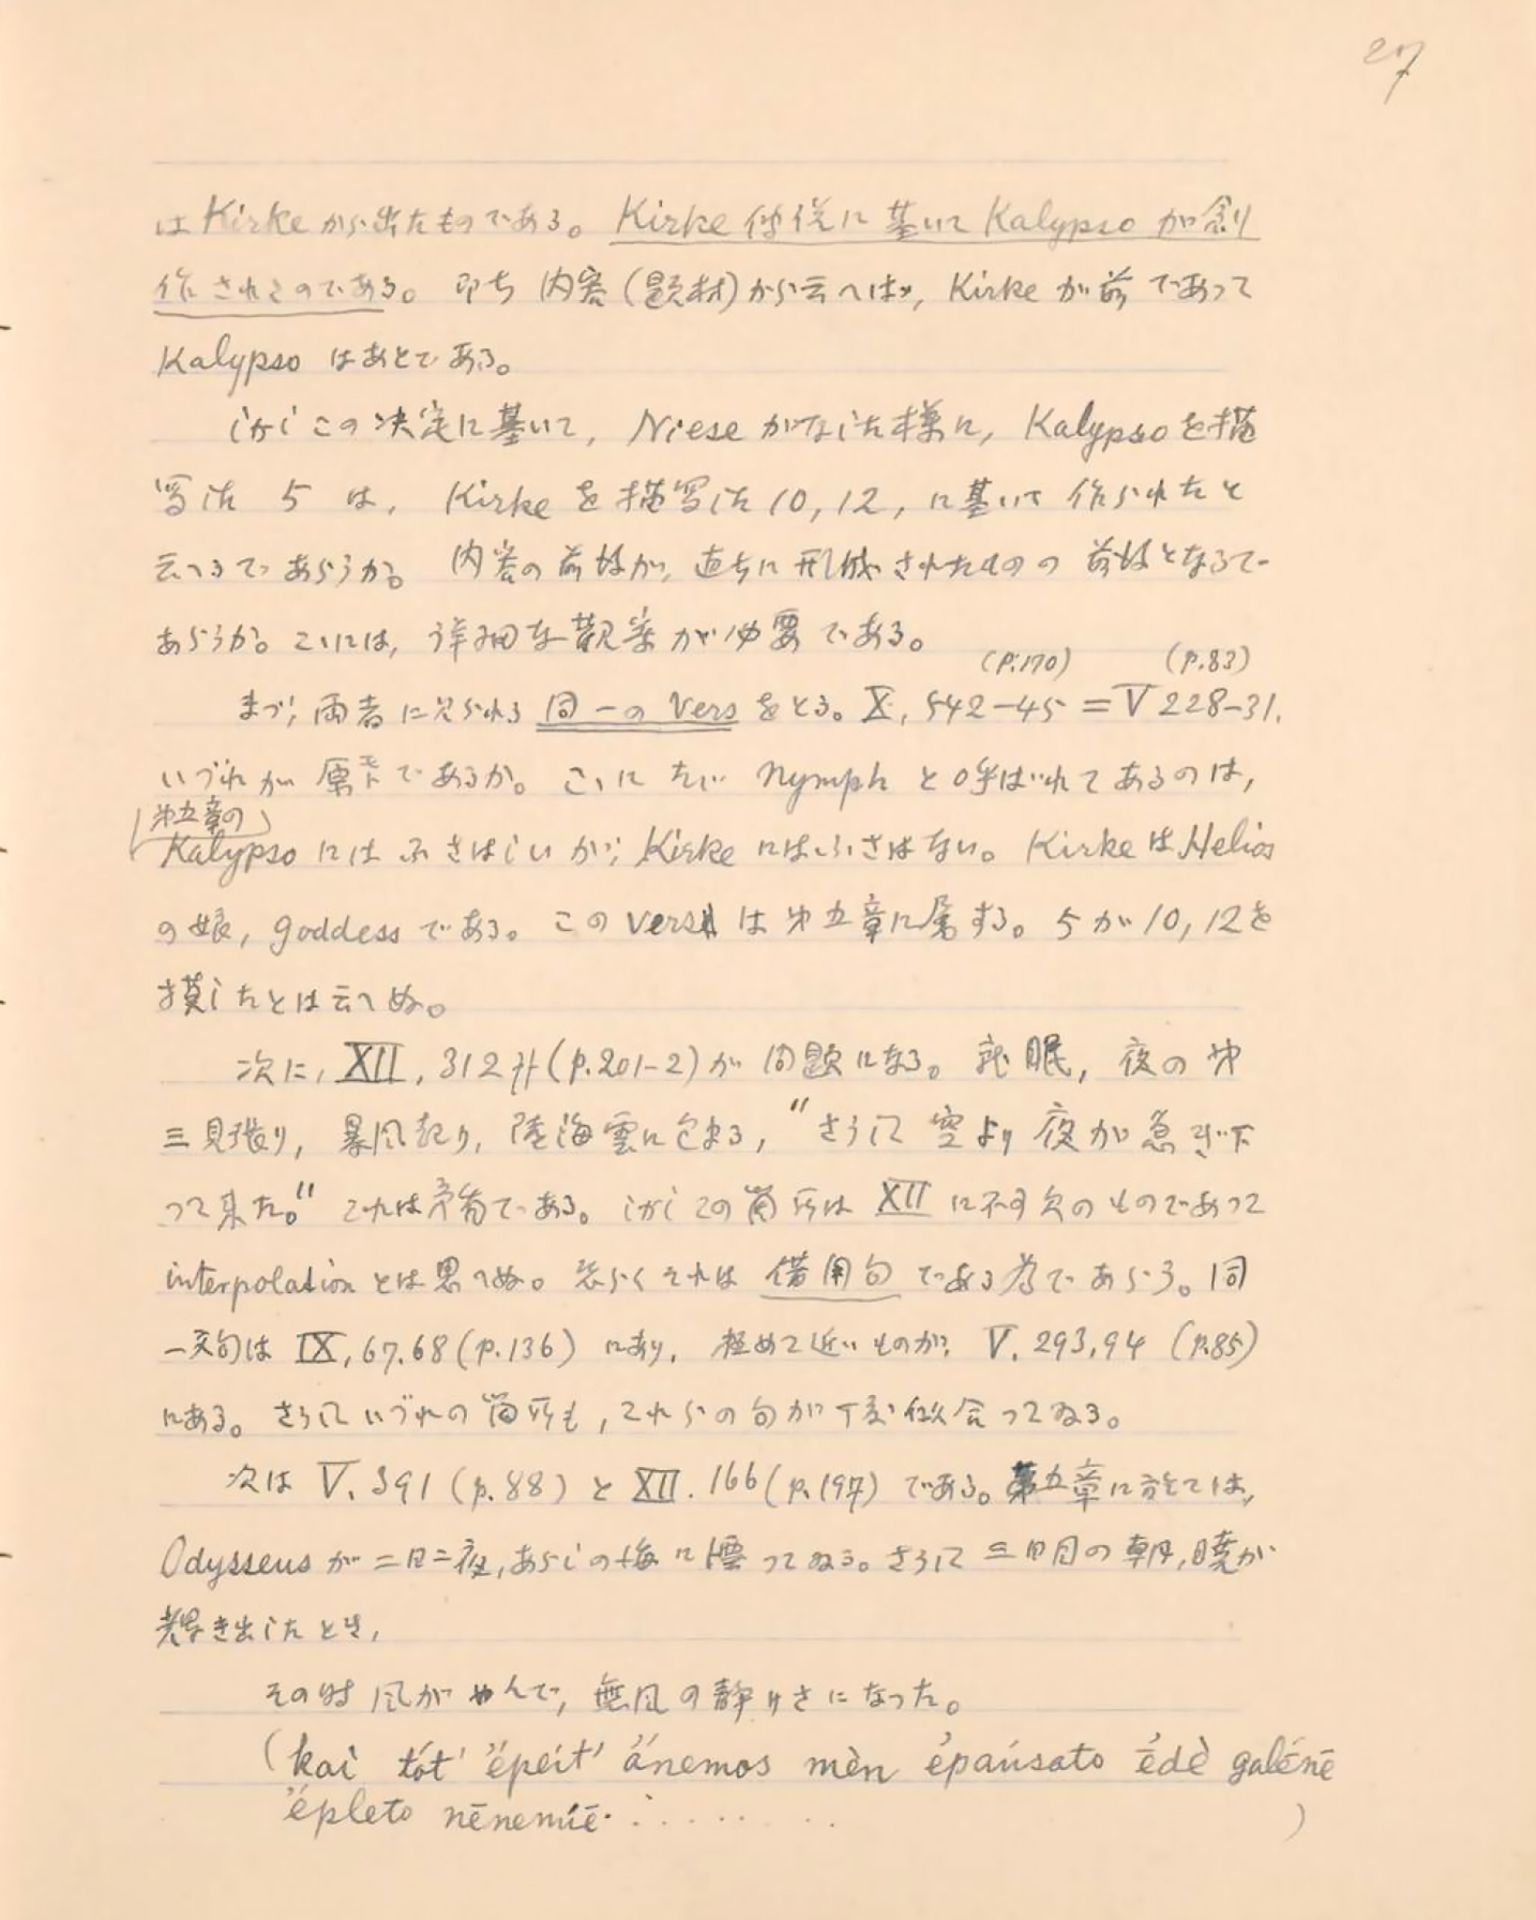 27
は Kirke から出たものである。Kirke 伝説に基いて Kalypso が創
作されたのである。即ち 内容(題材)から云へば, Kirke が前であって
Kalypso はあとである。
しかしこの決定に基いて, Niese がなした様に, Kalypso を描
写した 5 は, Kirke を描写した 10, 12, に基いて 作られたと
云へるであらうか。内容の前後が, 直ちに形成されたものの前後となるで
あらうか。こゝには, 詳細な觀察が必要である。
(p.170) (p.83)
まづ, 両者に見られる 同一の Vers をとる。X, 542-45 = V 228-31.
いづれが原モトであるか。こゝにたゞ Nymph と呼ばれてあるのは,
第五章の
Kalypso にはふさはしいが, Kirke にはふさはない。Kirke は Helios
の娘, goddess である。この Vers は 第五章に属する。5 が 10, 12 を
摸したとは云へぬ。
次に, XII, 312 ff (p.201-2) が 問題になる。就眠, 夜の第
三見張り, 暴風起り, 陸海雲に包まる, "さうして 空より 夜が急ぎ下
って来た。" これは矛盾である。しかしこの箇所は XII に不可欠のものであって
interpolation とは思へぬ。恐らくそれは 借用句 である為であらう。同
一文句は IX, 67.68 (p.136) にあり, 極めて近いものが, V. 293, 94 (p.85)
にある。さうしていづれの箇所も, これらの句が丁度似合ってゐる。
次は V. 391 (p.88) と XII. 166 (p.197) である。第五章に於ては,
Odysseus が二日二夜, あらしの海に漂ってゐる。さうして 三日目の朝, 曉が
輝き出したとき,
その時 風がやんで, 無風の静けさになった。
(kaì tót' épeit' ánemos mèn epaúsato ēdè galḗnē
épleto nēnemíē· . . . . . . . )